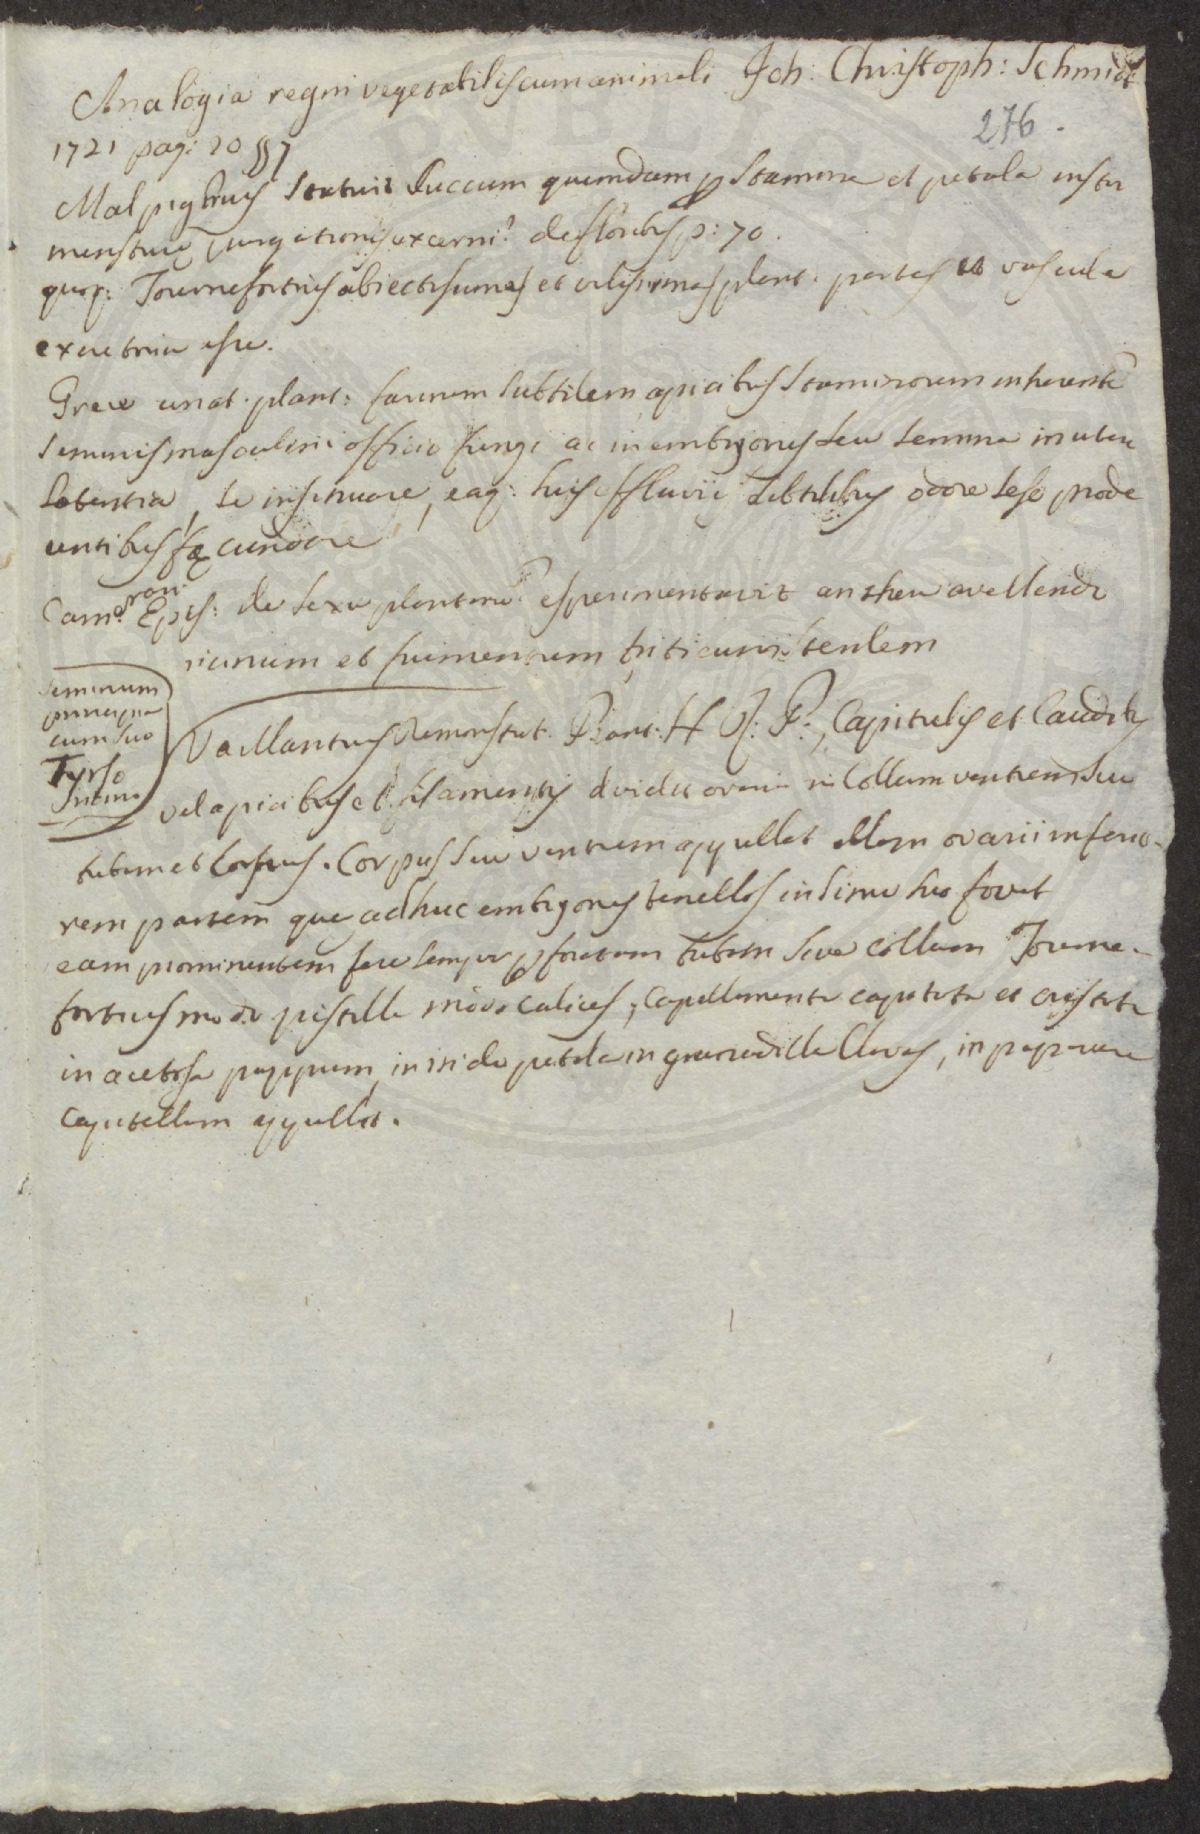 Analogia regni vegetabilis cum animali Joh: Christoph: Schmidt
276.
1721 pag: 20 §§ 7
Malpighius statuit succum quemdam p stamina et petala instar
menstruę purgationis excerni? de floribus p: 70.
quoq: Tournefortius abiectissimas et vilissimas plant: partes et vascula
excretoria esse.
Grew anat. plant: farinam subtilem apicibus staminorum inherente
seminis masculini officio fungi ac in embryones seu semina in utero
latentia, se insinuare, eaq: suis effluviis subtilibus odore sese prode
untibus fęcundare
Camerari: Epis: de sexu plantarum experimentavit anthera avellendo
ricinum et frumentum, triticum sterilem
seminum
principia
cum suo
Tyrso
intimo
Vaillantius Demonstrat. Plant: H R: P:, Capitulis et Caudibus
vel apicibus et filamentis dividit ovaria in Collum ventrem seu
tubam et Corpus. Corpus seu ventrem appellat illam ovarii inferio-
rem partem que adhuc embryones tenellos in sinu suo fovet
eam prominentem fere semper pforatam tubam sive collum Tourne-
fortius modo pistilla modo calices, Capillamenta capitata et cristata
in acetosa pappum, in iride petala in granadilla Clavas, in papavere
Capitellum appellat.